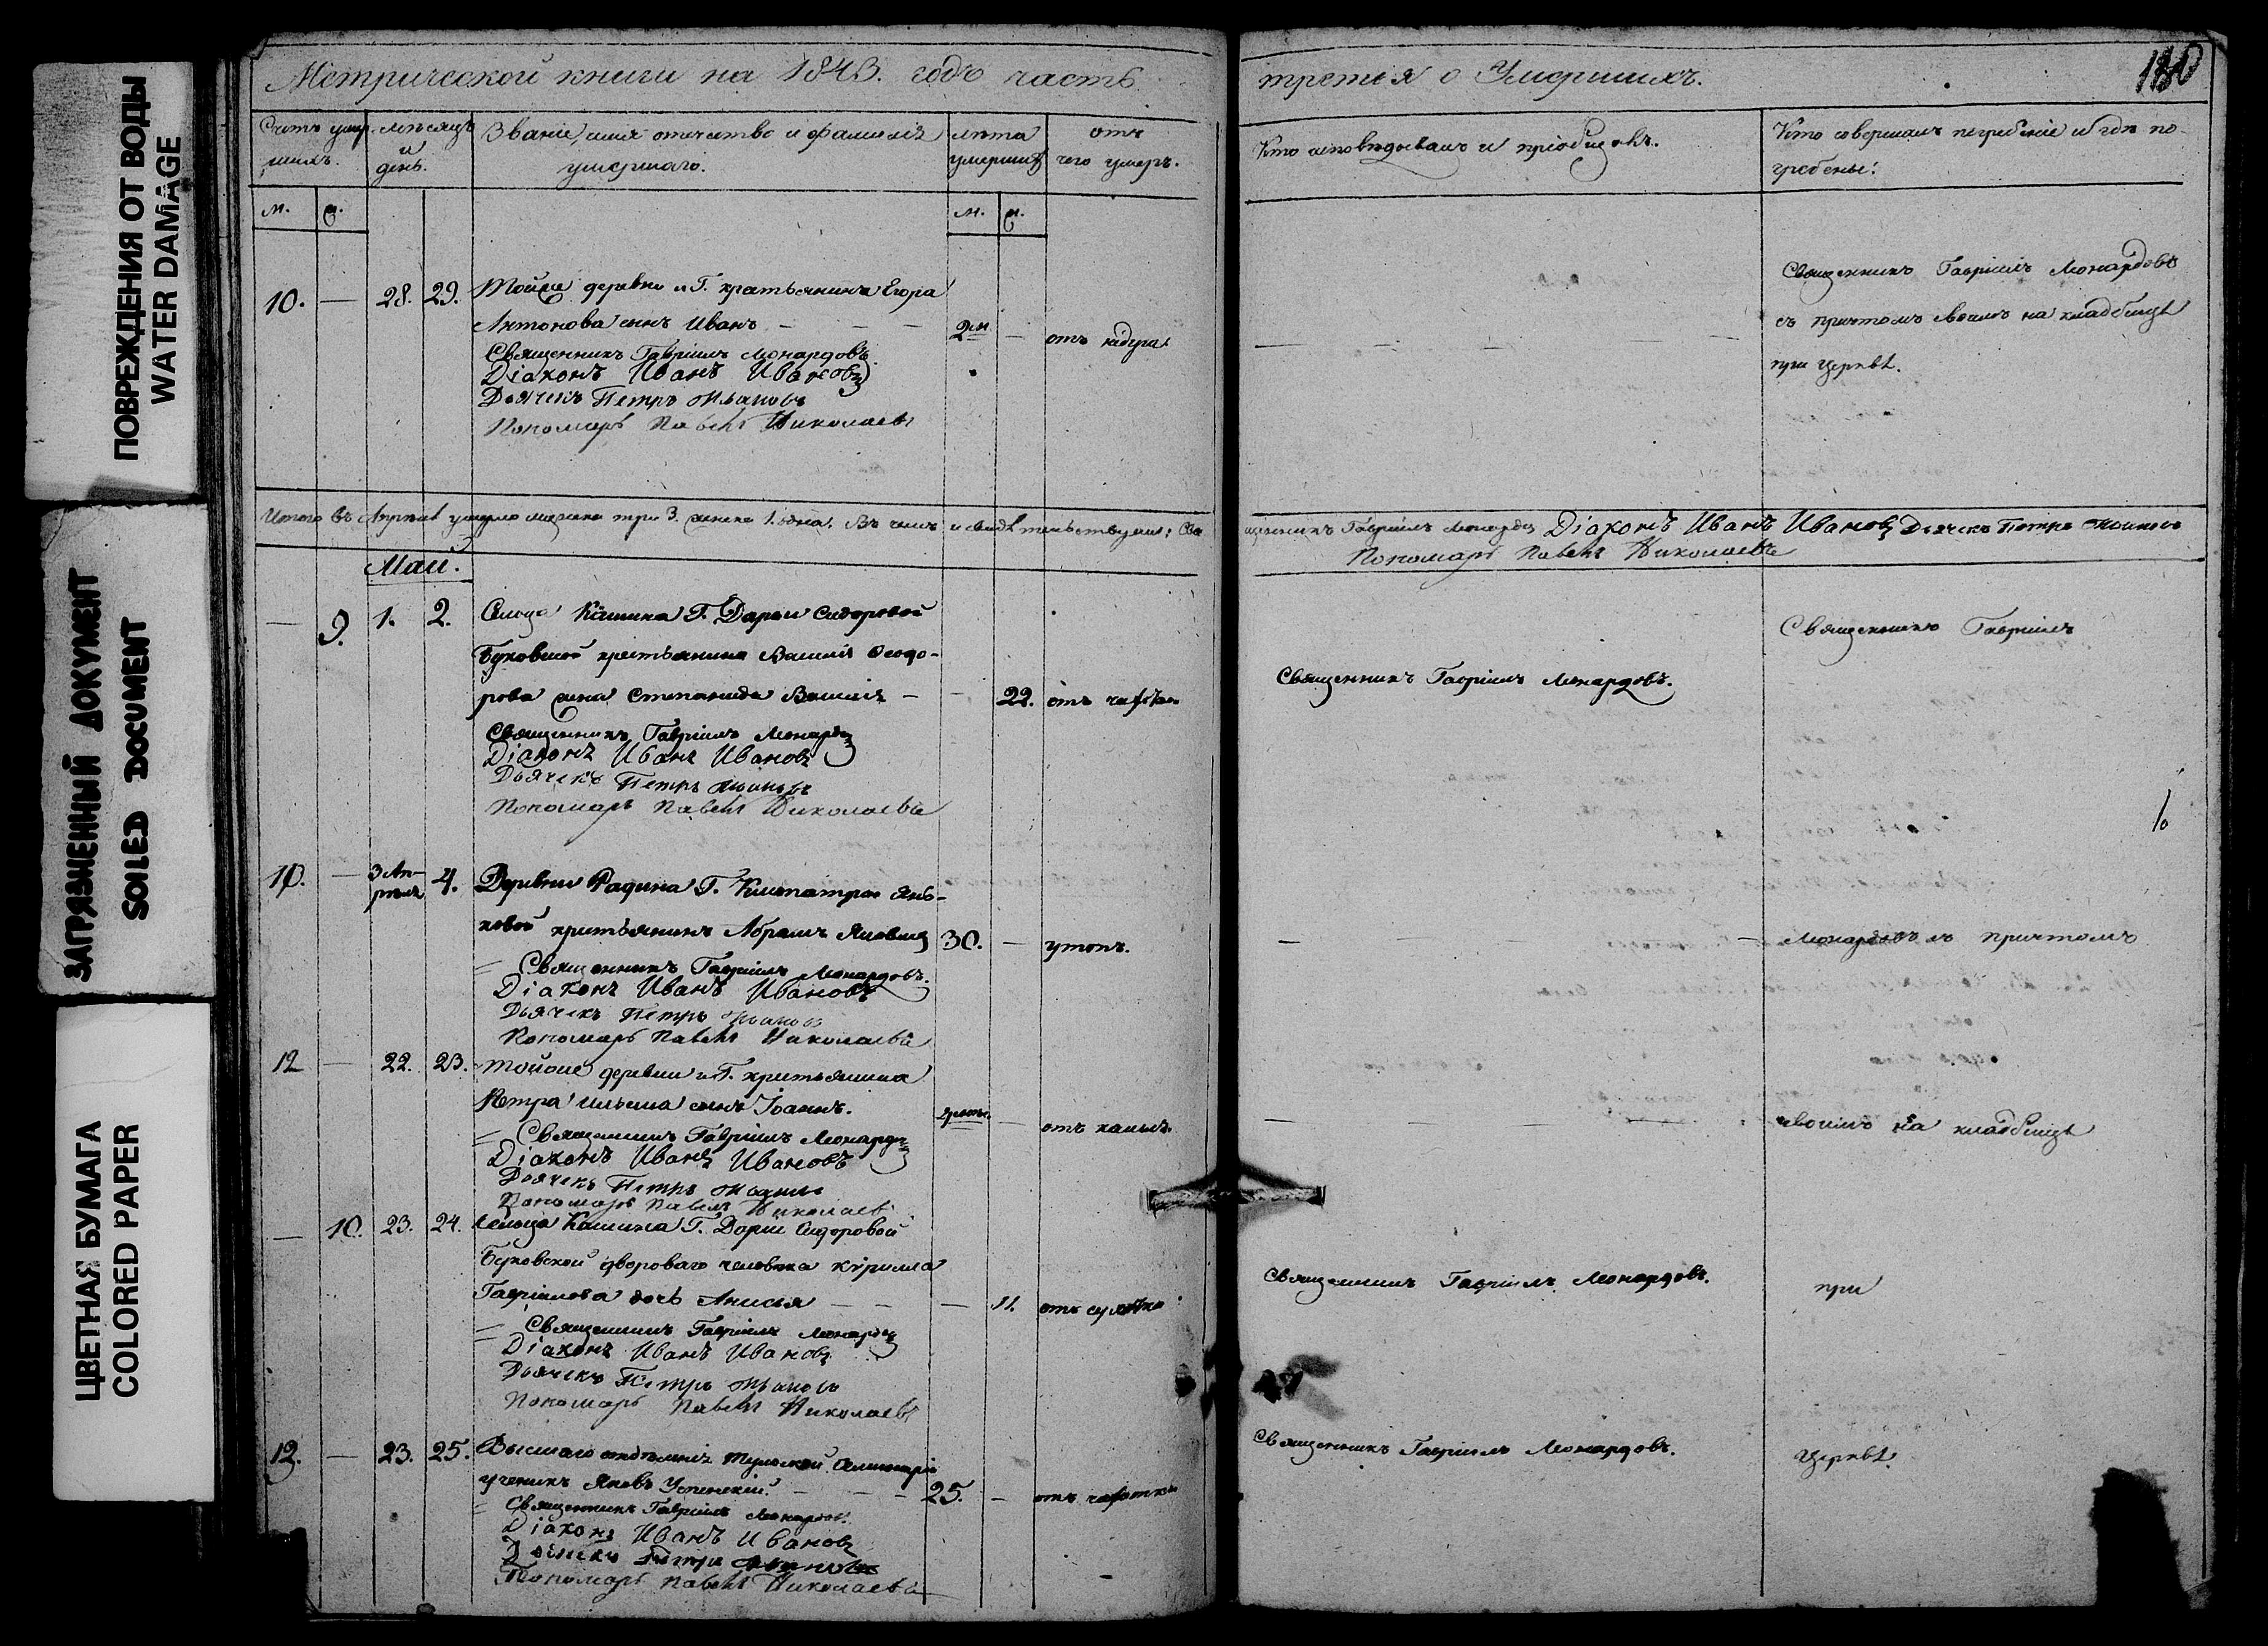 ПОВРЕЖДЕНИЯ ОТ ВОДЫ
WATER DAMAGE
ЗАГРЯЗНЕННЫЙ ДОКУМЕНТ
SOILED DOCUMENT
ЦВЕТНАЯ БУМАГА
COLORED PAPER
Метрической книги на 1843. годъ часть
третья о Умершихъ.
Счетъ умершихъ.
мѣсяцъ и день.
Званіе, имя отечество и фамилія умершаго.
лѣта умершихъ
отъ чего умеръ.
Кто исповѣдовалъ и пріобщалъ.
Кто совершалъ погребеніе и гдѣ погребены.
м. ж.
м. ж.
10. — 28. 29. Тойже деревни и Г. крестьянина Егора
Антонова сынъ Иванъ — — —
Священникъ Гавріилъ Леонардовъ
Діаконъ Иванъ Ивановъ
Дьячекъ Петръ
Пономарь Павелъ Николаевъ
Священникъ Гавріилъ Леонардовъ
съ причтомъ своимъ на кладбищѣ
при церквѣ.
Итого въ Апрѣлѣ умерло мужеска три 3. женска 1. одна. Въ чемъ и свидѣтельствуемъ: Священникъ Гавріилъ Леонардовъ Діаконъ Иванъ Ивановъ Дьячекъ Петръ
Пономарь Павелъ Николаевъ
Май.
— 9. 1. 2. Сельца Кашина Г. Дарьи Сидоровой
Буковской крестьянина Василія Ѳеодо-
рова жена Степанида Василія —
— 22. отъ чахотки
Священникъ Гавріилъ Леонардовъ
Діаконъ Иванъ Ивановъ
Дьячекъ Петръ
Пономарь Павелъ Николаевъ
Священникъ Гавріилъ Леонардовъ.
Священникъ Гавріилъ
— 3 Ап-
рѣля 4. Деревни Г. Клеопатры
крестьянинъ Абрамъ Яковлевъ 30. — утопъ.
Священникъ Гавріилъ Леонардовъ.
Діаконъ Иванъ Ивановъ
Дьячекъ Петръ
Пономарь Павелъ Николаевъ
Леонардовъ съ причтомъ
12 — 22. 23. Тойже деревни и Г. крестьянина
Петра Ильина сынъ Іоаннъ.
— отъ кашля.
Священникъ Гавріилъ Леонардовъ
Діаконъ Иванъ Ивановъ
Дьячекъ Петръ
Пономарь Павелъ Николаевъ
своимъ на кладбищѣ
— 10. 23. 24. Сельца Кашина Г. Дарьи Сидоровой
Буковской двороваго человѣка Кирилла
Гавріилова дочь Анисья — — — 11. отъ
Священникъ Гавріилъ Леонардовъ
Діаконъ Иванъ Ивановъ
Дьячекъ Петръ
Пономарь Павелъ Николаевъ
Священникъ Гавріилъ Леонардовъ.
при
— 23. 25. Высшаго отдѣленія Тульской Семинаріи
ученикъ Яковъ Успенскій. — — — 25. — отъ чахотки
Священникъ Гавріилъ Леонардовъ
Діаконъ Иванъ Ивановъ
Дьячекъ Петръ
Пономарь Павелъ Николаевъ
Священникъ Гавріилъ Леонардовъ.
церквѣ.